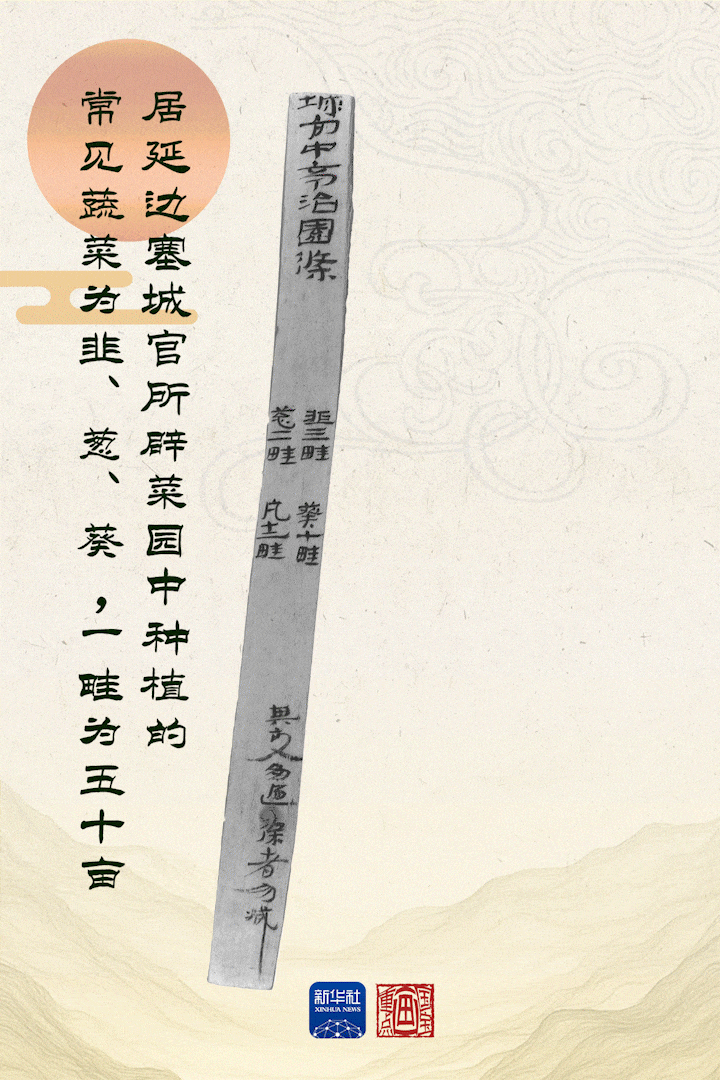 居延边塞城官所辟菜园中种植的
常见蔬菜为韭、葱、葵，一畦为五十亩
城官中亭治園條
韭三畦
葵七畦
葱二畦
凡十二畦
其故多過條者勿減
新华社
XINHUA NEWS